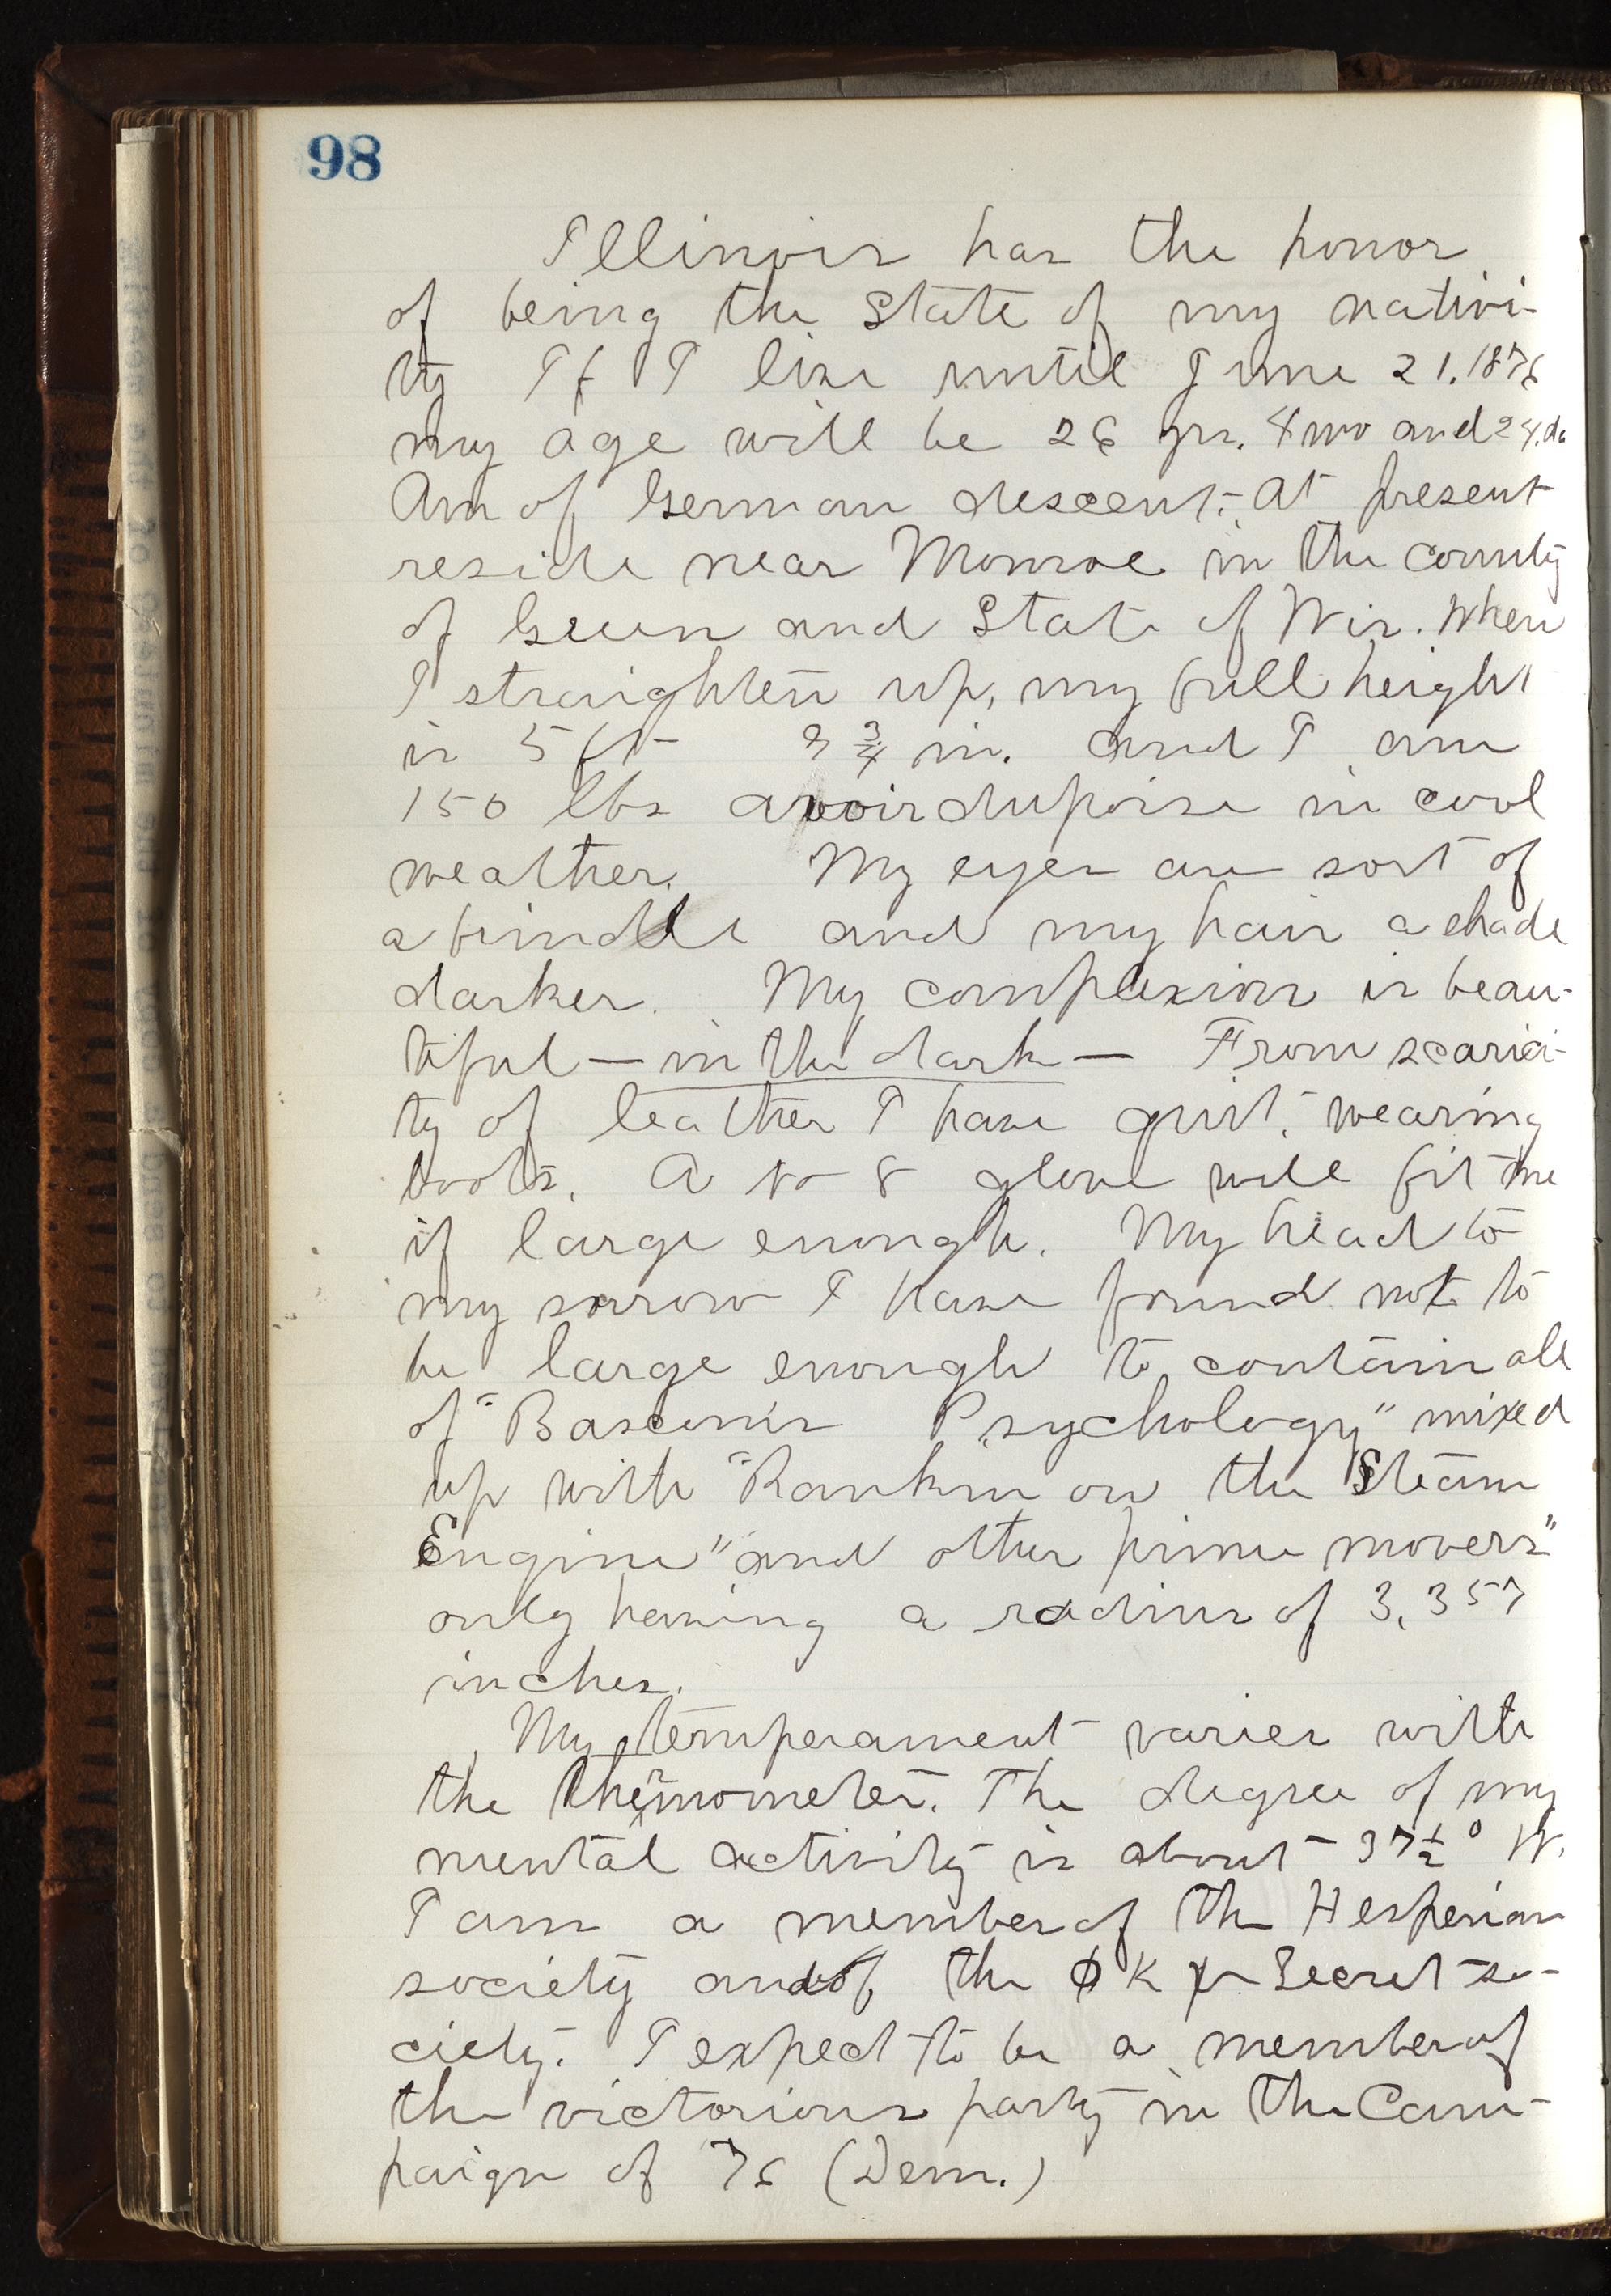 98
Illinois has the honor
of being the State of my nativi-
ty If I live until June 21. 1876
my age will be 26 yrs. 4 mo and 24 da
Am of German descent. At present
reside near Monroe in the county
of Green and State of Wis. When
I straighten up, my full height
is 5 ft 9 3/4 in. and I am
150 lbs avoirdupoise in cool
weather. My eyes are sort of
a brindle and my hair a shade
darker. My complexion is beau-
tiful — in the dark — From scarici-
ty of leather I have quit wearing
boots. A no 8 glove will fit me
if large enough. My head to
my sorrow I have found not to
be large enough to contain all
of "Bascom's Psychology" mixed
up with "Rankin on the Steam
Engine" and other prime movers"
only having a radius of 3,357
inches.
My temperament varies with
the thermometer. The degree of my
mental activity is about 37 1/2° W.
I am a member of the Hesperian
society and of the Φ K Ψ Secret so-
ciety. I expect to be a member of
the victorious party in the Cam-
paign of 76 (Dem.)